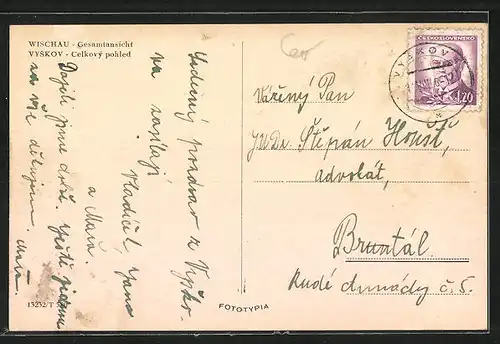 WISCHAU - Gesamtansicht
VYŠKOV - Celkový pohled
Srdečný pozdrav z Vyško-
va zasílají
Jana
a Mařa.
Dojeli jsme dobře. Ještě jednou
za vše děkujem.
13232/T
FOTOTYPIA
ČESKOSLOVENSKO
1.20
VYŠKOV
Vážený Pan
JUDr. Štěpán
advokát,
Bruntál.
Rudé armády č. 5.